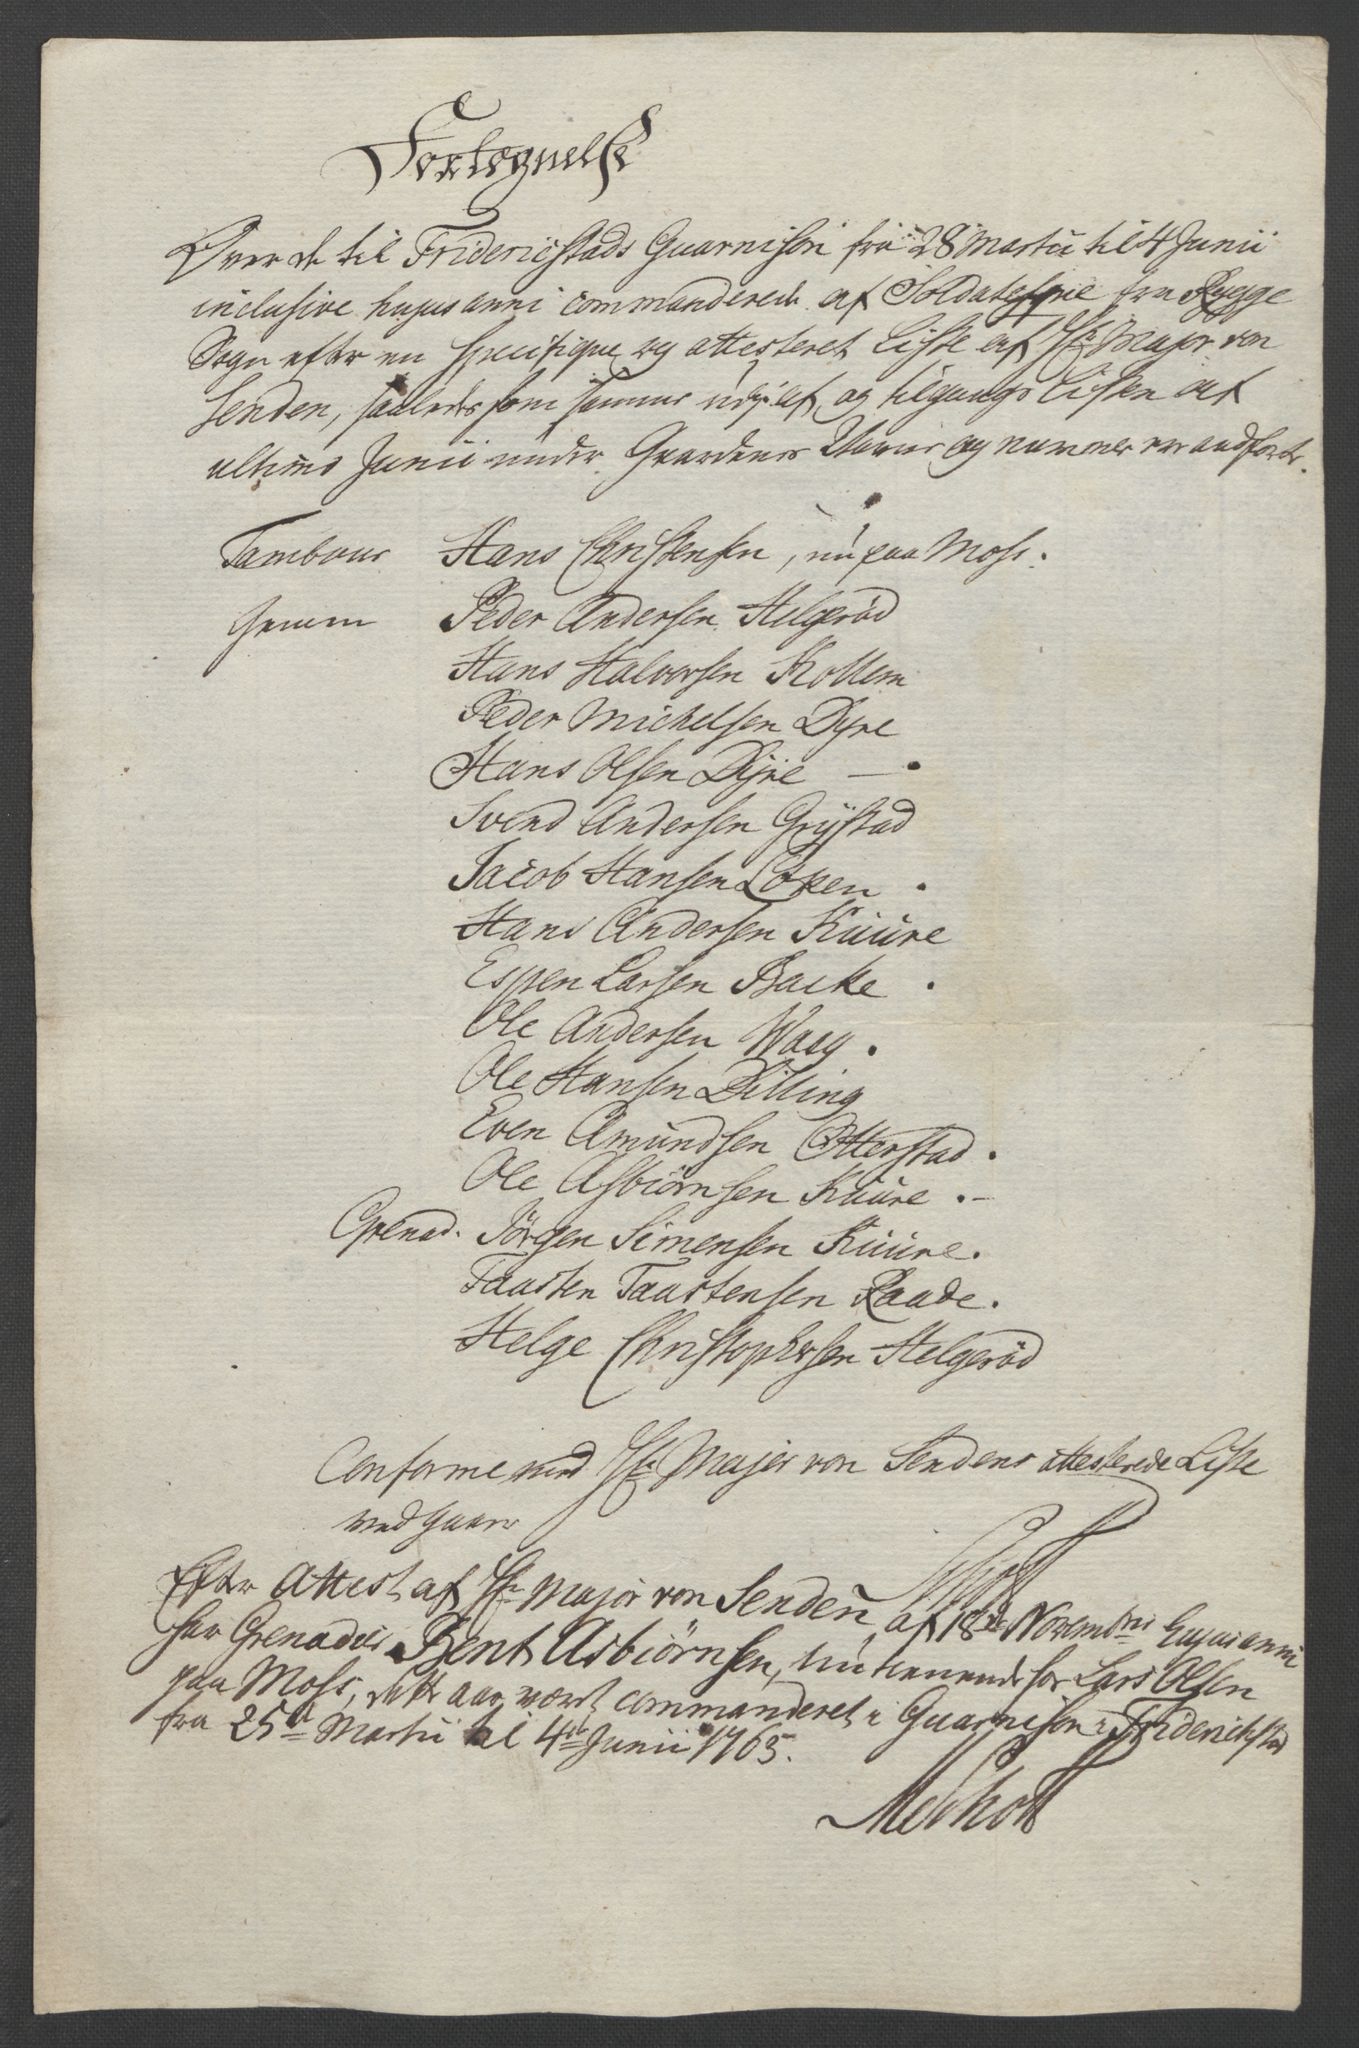 Fortegnelse
Over de til Friderichstads Guarnison fra 28 Martii til 4 Junii
inclusive hujus anni commanderede af Soldatesqve fra Rygge
Sogn efter en specifique og attesteret Liste af Hr Major von
Senden, saaledes som samme udj af og tilgangs Listen af
ultimo Junii under Gaardenes Navne og numer er andført.
Tambour Hans Christensen, nu paa Moss.
Gemeen Peder Andersen Helgerød
Hans Halvorsen Kollem
Peder Michelsen Dyre
Hans Olsen Dyre —.
Svend Andersen Grystad
Jacob Hansen Löken .
Hans Andersen Kuure
Espen Larsen Backe .
Ole Andersen Waag .
Ole Hansen Dilling
Even Amundsen Otterstad .
Ole Asbiörnsen Kuure .-
Grenad. Jörgen Simensen Kuure.
Taasten Taastensen Raade.
Helge Christophersen Helgeröd
Conforme med Hr Major von Sendens attesterede Liste
vedgaaer
Efter Attest af Hr Major von Senden af 18de Novembris hujus anni
har Grenadeer Bent Asbiörnsen, nu tienende for Lars Olsen
paa Moss, dette aar været commanderet i Guarnison i Friderichstad
fra 25de Martii til 4de Junii 1765.